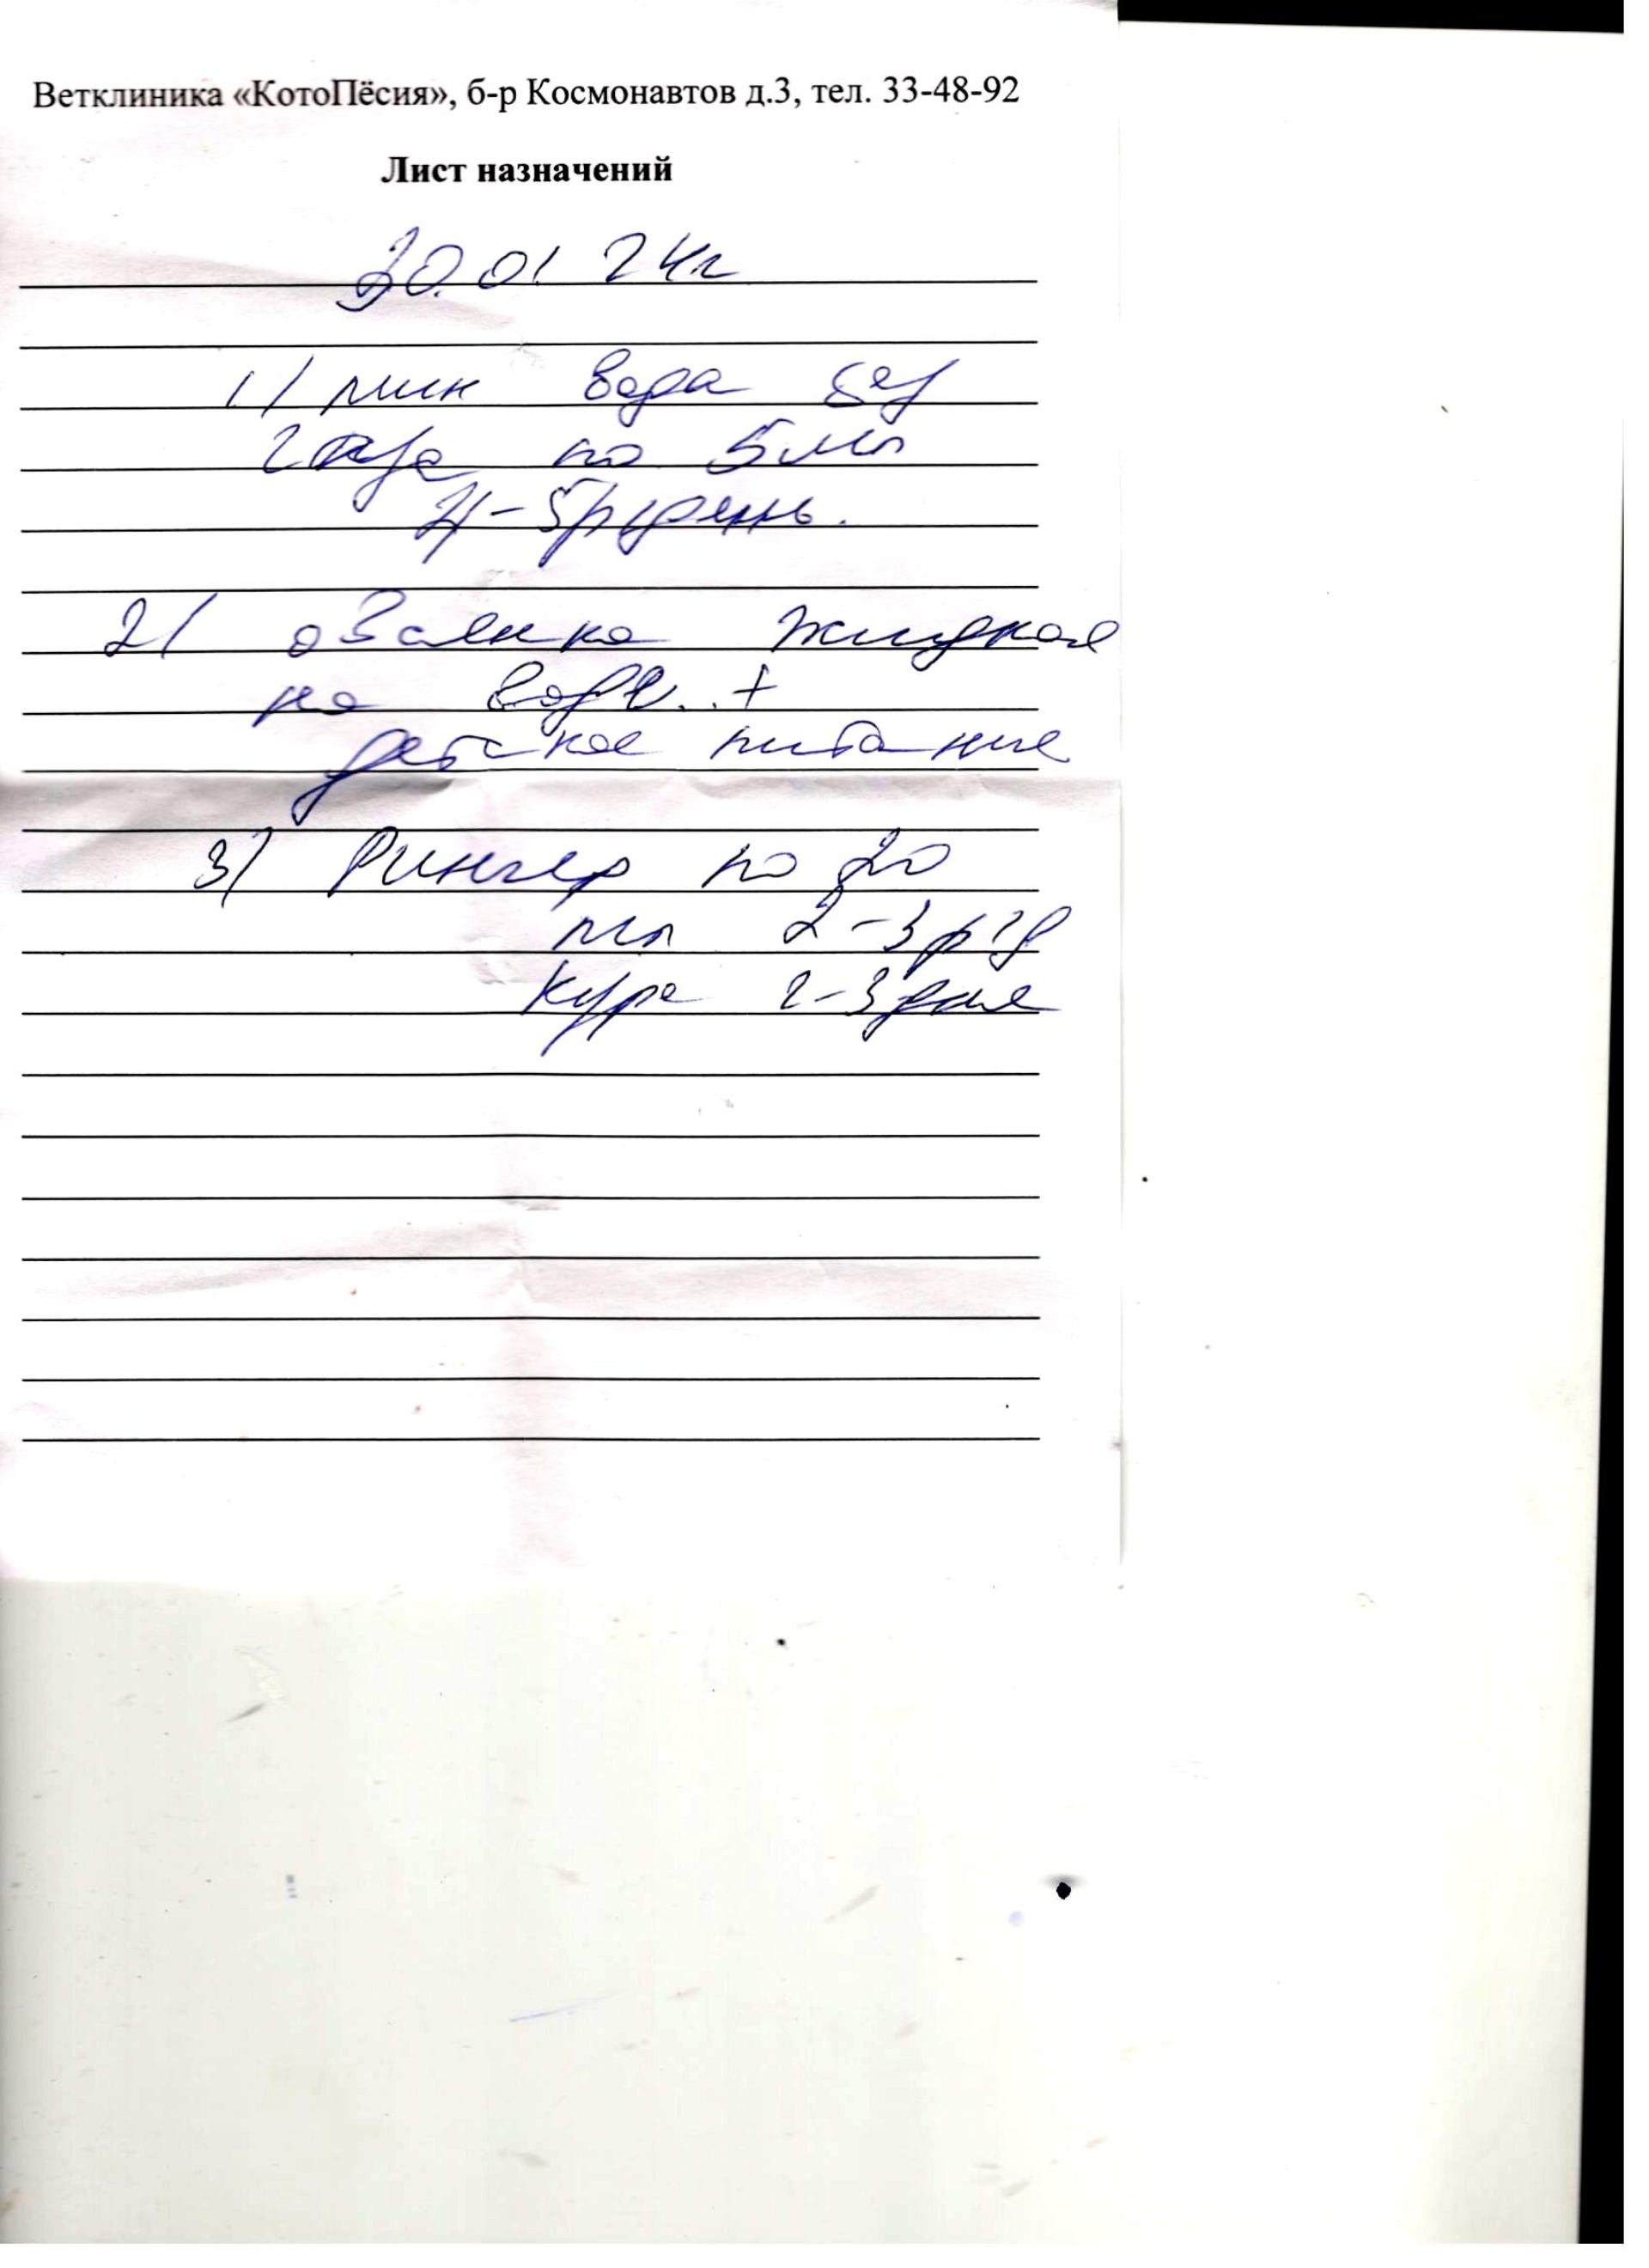 Ветклиника «КотоПёсия», б-р Космонавтов д.3, тел. 33-48-92
Лист назначений
30.01 24г
1/ мин вода без
газа по 5 мл
4-5 р/день.
2/ овсянка жидкая
на воде.. +
детское питание
3/ Рингер по 20
мл 2-3 р/д
курс 2-3 дня